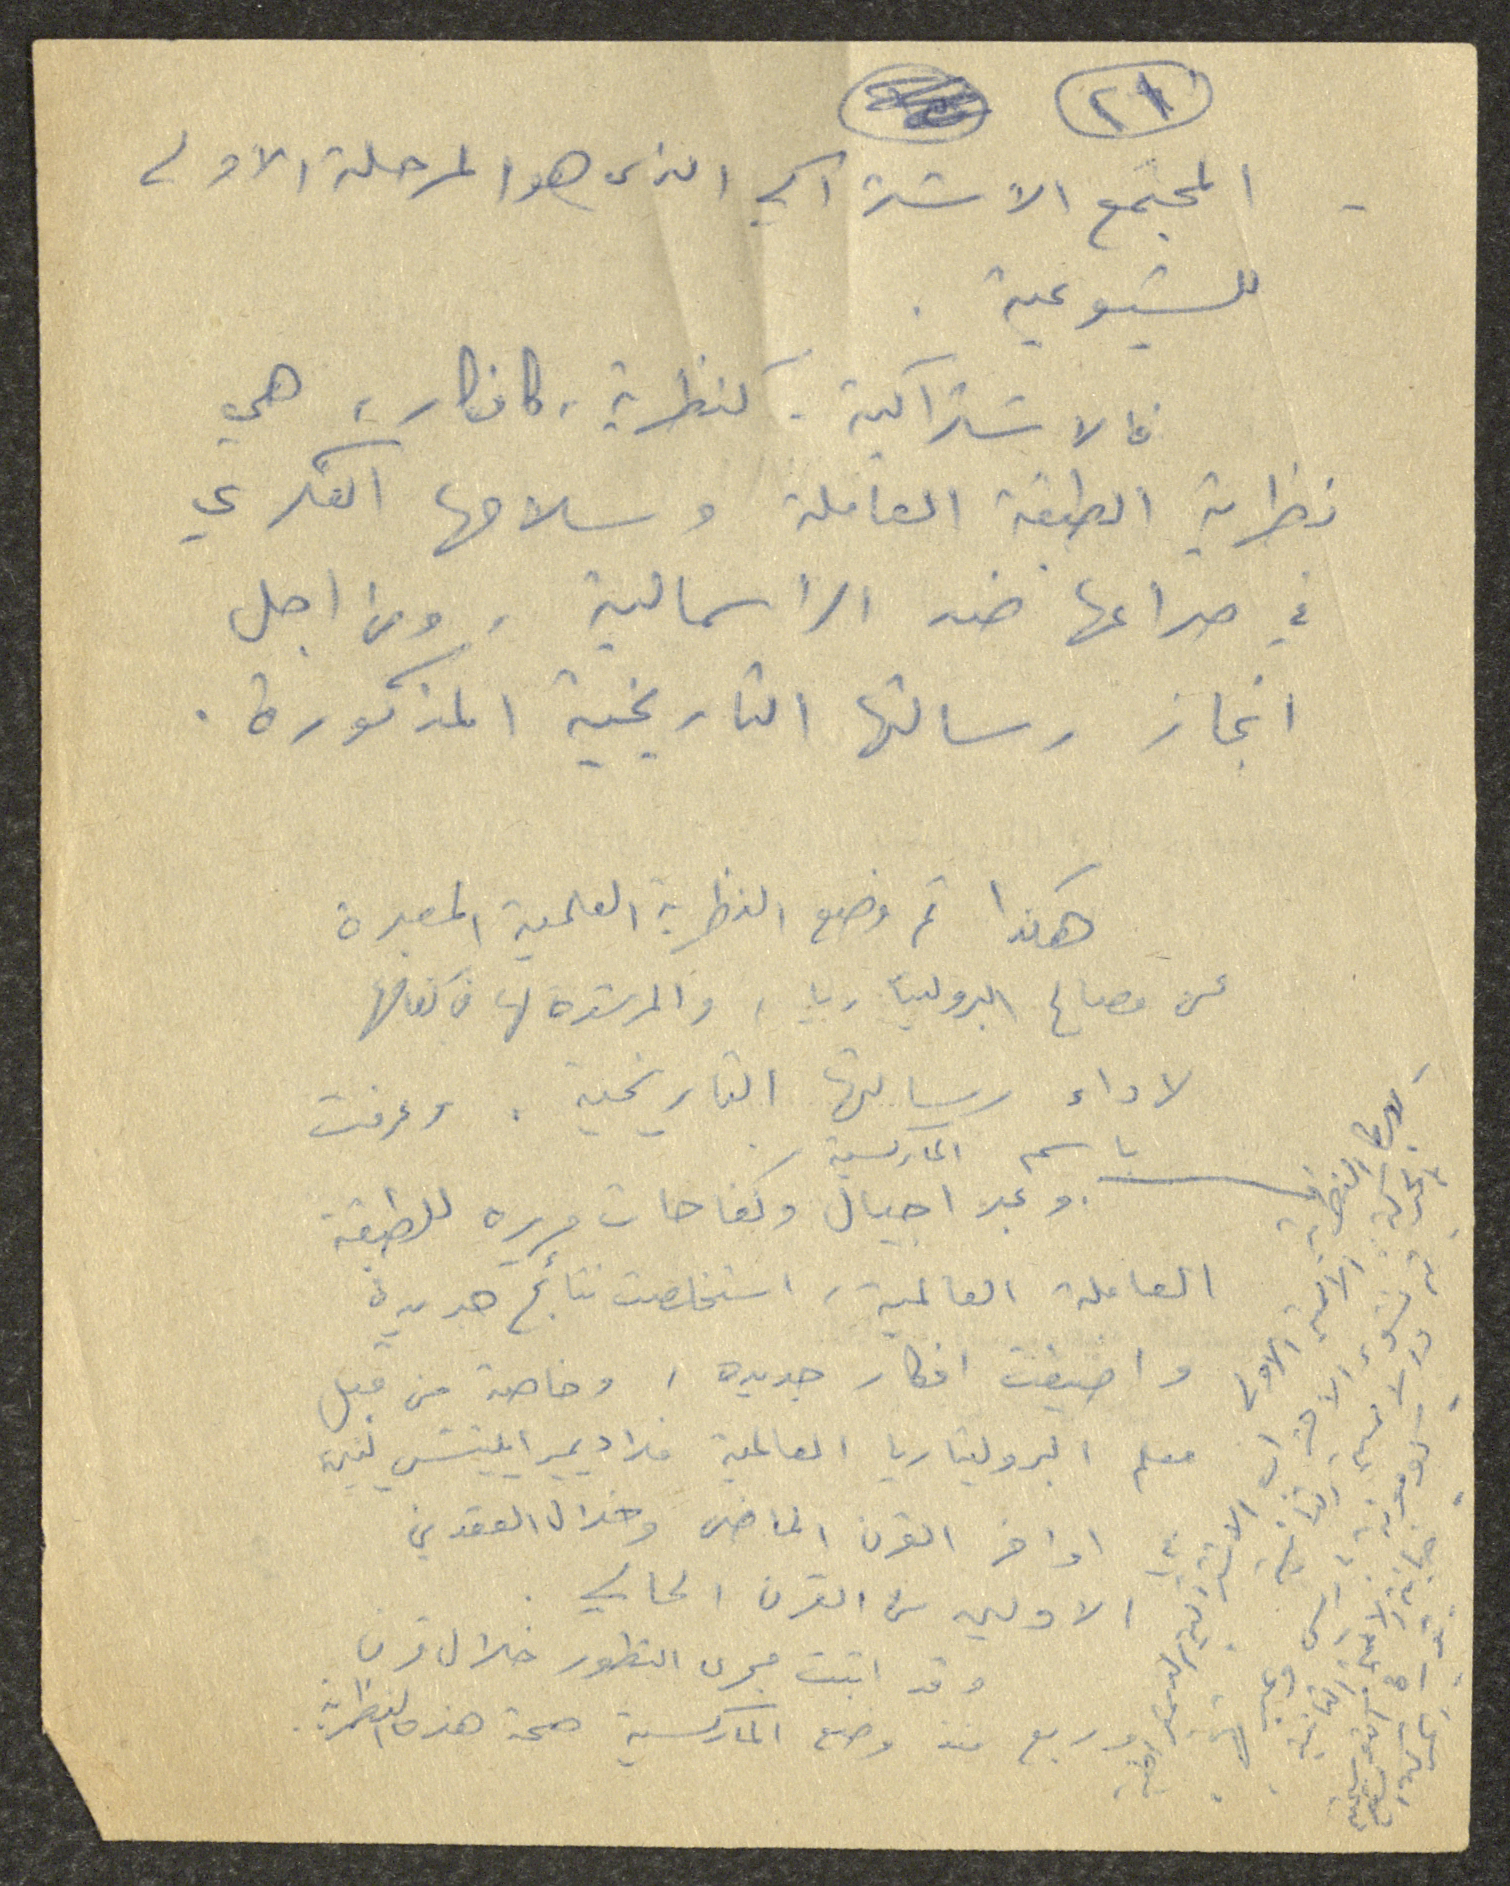 ٢١
- المجتمع الاشتراكي الذي هو المرحلة الاولى
للشيوعية .
فالاشتراكية - كنظرية ، كافكار ، هي
نظرية الطبقة العاملة وسلاحها الفكري
في صراعها ضد الراسمالية ، ومن اجل
انجاز رسالتها التاريخية المذكورة .
هكذا تم وضع النظرية العلمية المعبرة
عن مصالح البروليتاريا ، والمرشدة لها في كفاحها
لاداء رسالتها التاريخية . وعرفت
باسم الماركسية .
وعبر اجيال وكفاحات مريره للطبقة
العاملة العالمية ، استخلصت نتائج جديدة
واضيفت افكار جديده ، وخاصة من قبل
معلم البروليتاريا العالمية فلاديمير ايليتش لينين
في اواخر القرن الماضي وخلال العقدين
الاولين من القرن الحالي .
وقد اثبت مجرى التطور خلال قرن
وربع منذ وضع الماركسية صحة هذه النظرية .